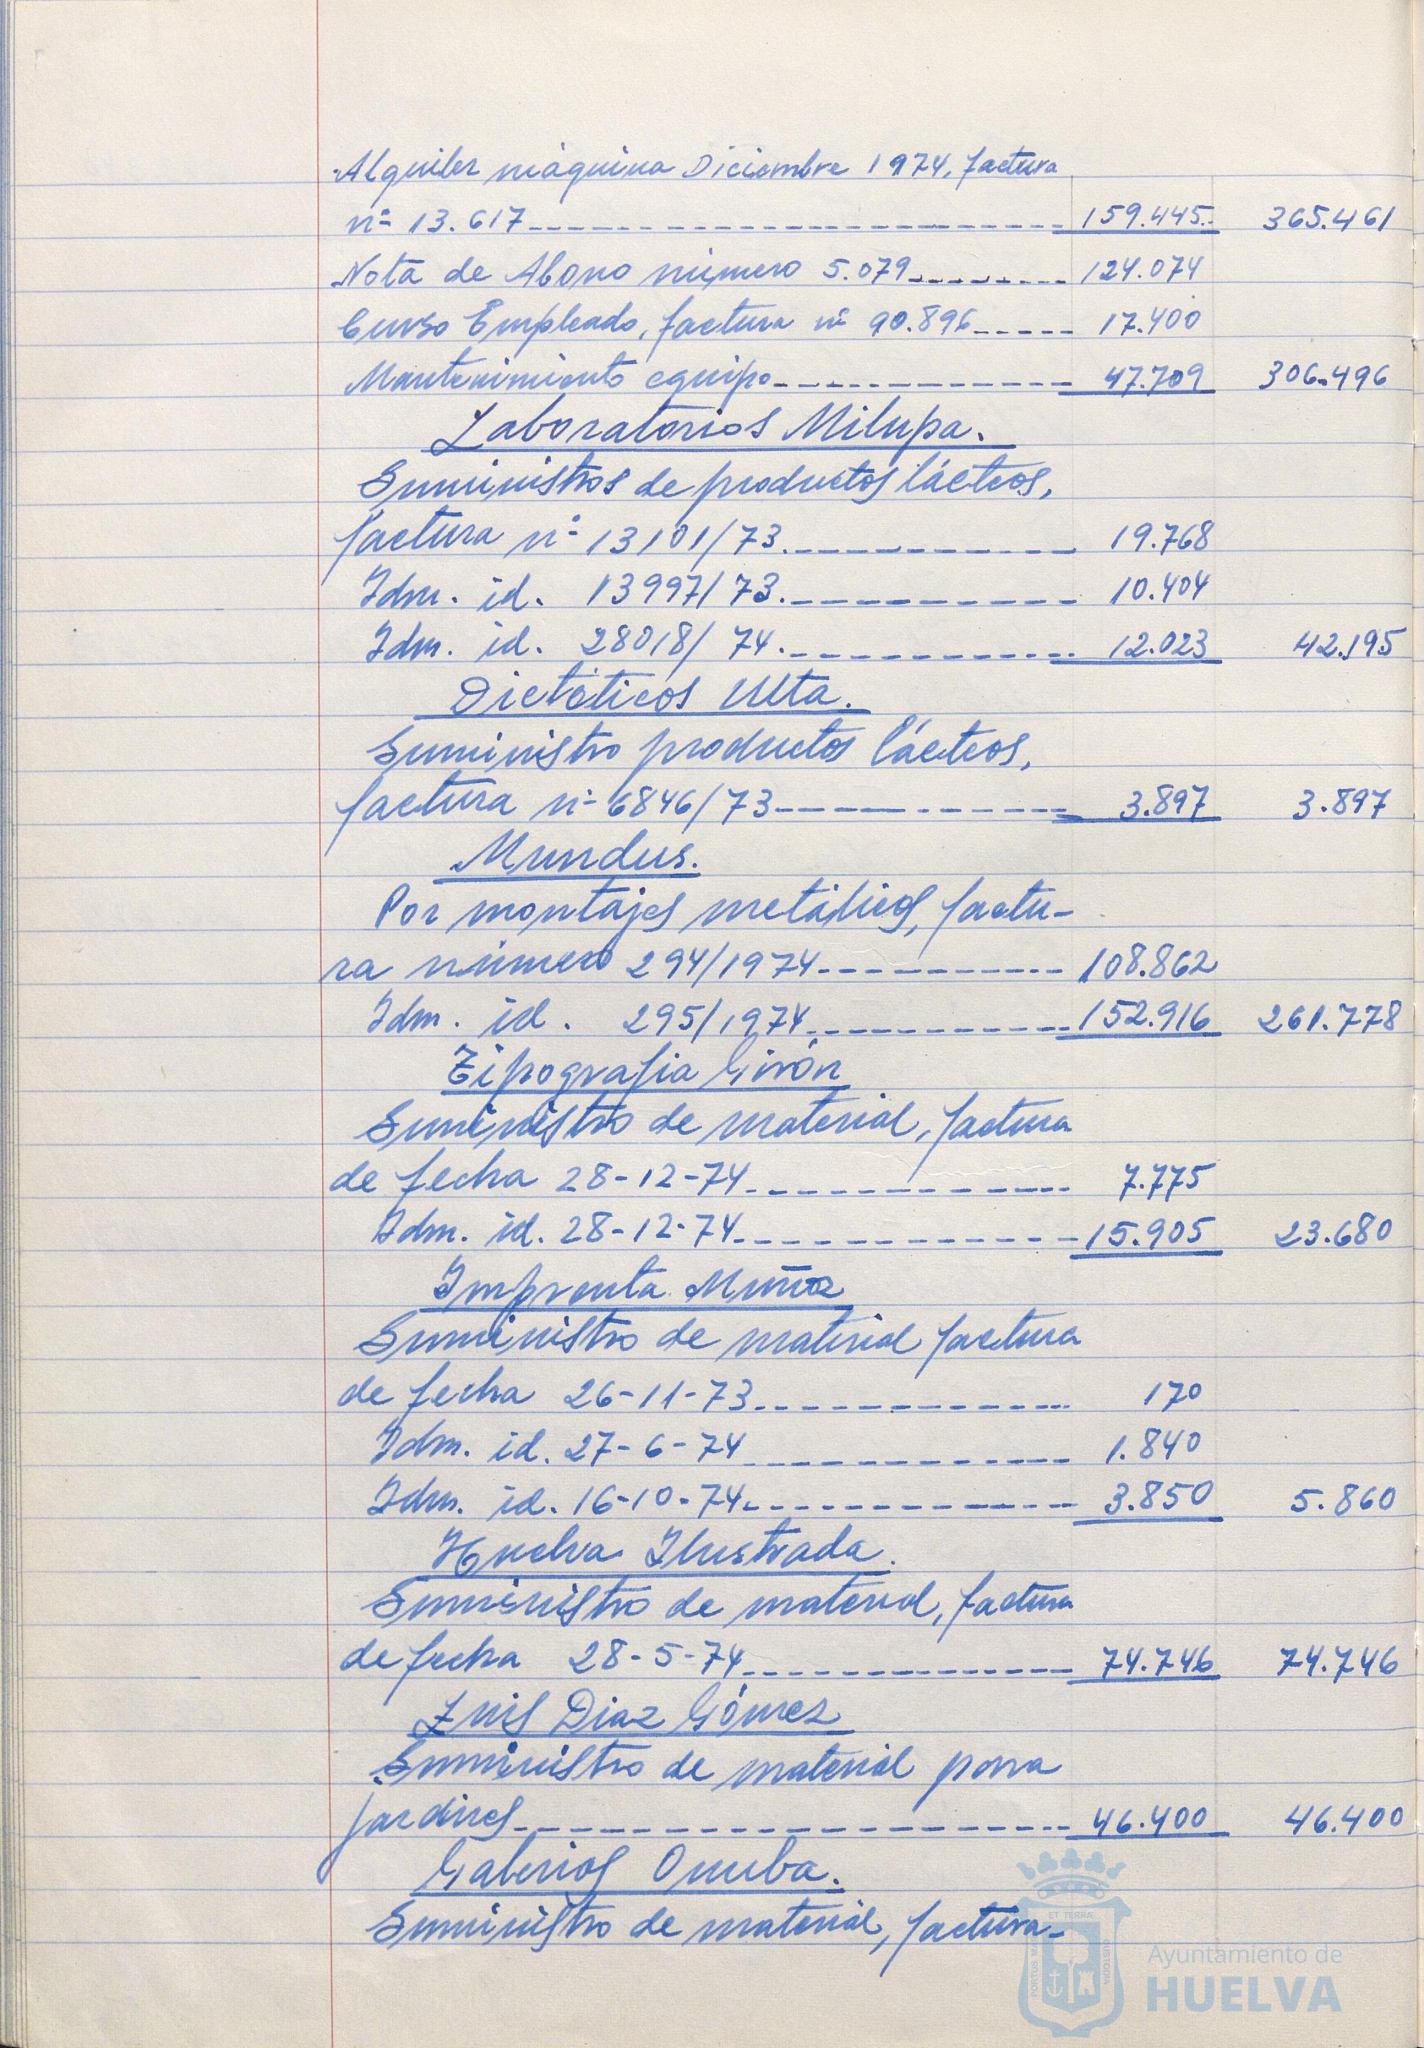 Alquiler máquina Diciembre 1974, factura
nº 13.617 159.445 365.461
Nota de Abono número 5.079 124.074
Curso Empleado, factura nº 90.896 17.400
Mantenimiento equipo 47.709 306.496
Laboratorios Milupa.
Suministros de productos lácteos,
factura nº 13101/73 19.768
Idm. id. 13997/73. 10.404
Idm. id. 28018/74. 12.023 42.195
Dietéticos Ulta.
Suministro productos lácteos,
factura nº 6846/73 3.897 3.897
Mundus.
Por montajes metálicos, factu-
ra número 294/1974 108.862
Idm. id. 295/1974 152.916 261.778
Tipografia Girón
Suministro de material, factura
de fecha 28-12-74 7.775
Idm. id. 28-12-74 15.905 23.680
Imprenta Muñoz
Suministro de material factura
de fecha 26-11-73 170
Idm. id. 27-6-74 1.840
Idm. id. 16-10-74 3.850 5.860
Huelva Ilustrada.
Suministro de material, factura
de fecha 28-5-74 74.746 74.746
Luis Diaz Gómez
Suministro de material para
jardines 46.400 46.400
Galerias Onuba.
Suministro de material, factura-
ET TERRAE
PORTUS MARIS
CUSTODIA
Ayuntamiento de
HUELVA